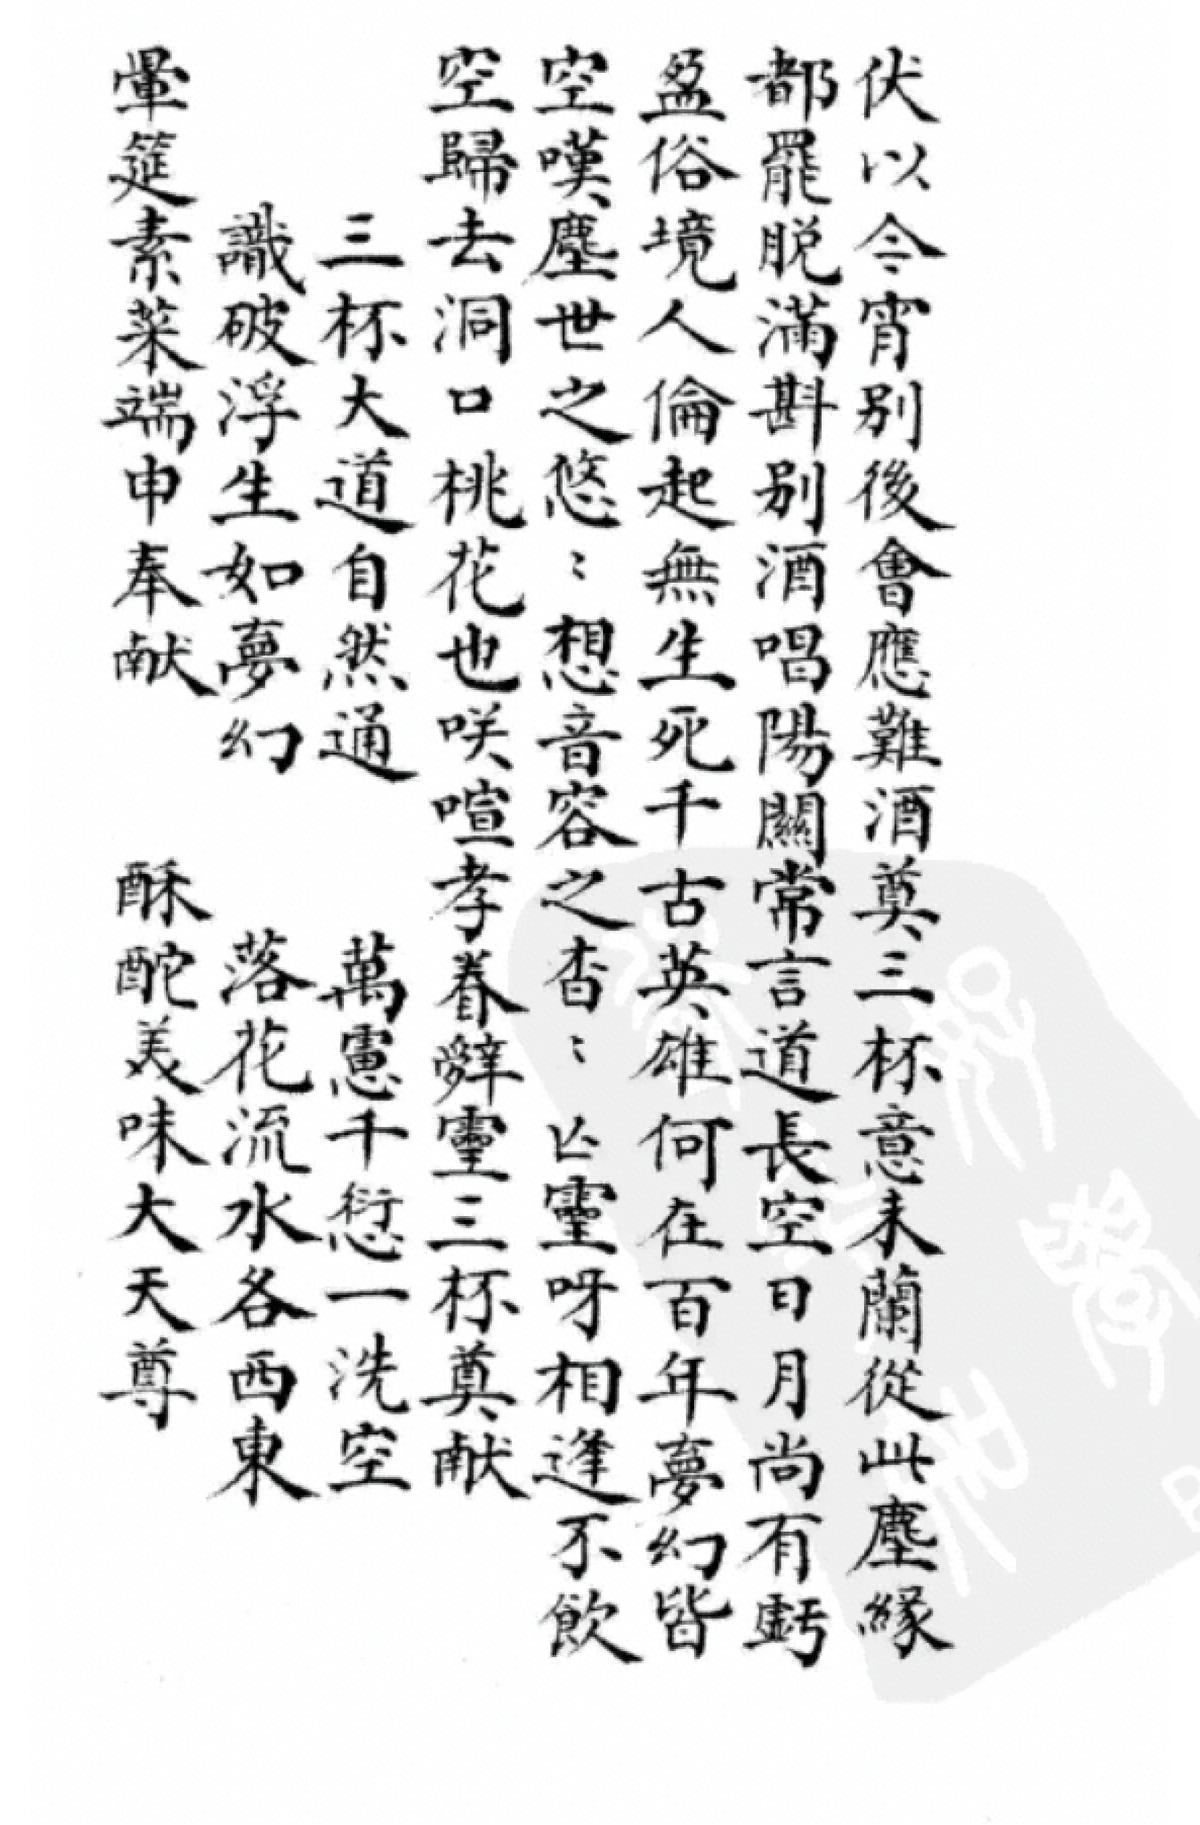 伏以今宵別後會應難酒奠三杯意未蘭從此塵緣
都罷脫滿斟別酒唱陽關常言道長空日月尚有虧
盈俗境人倫起無生死千古英雄何在百年夢幻皆
空嘆塵世之悠〻想音容之杳〻亡靈呀相逢不飲
空歸去洞口桃花也咲喧孝眷辭靈三杯奠献
三杯大道自然通 萬慮千愆一洗空
識破浮生如夢幻 落花流水各西東
暈筵素菜端申奉献 酥酡美味大天尊